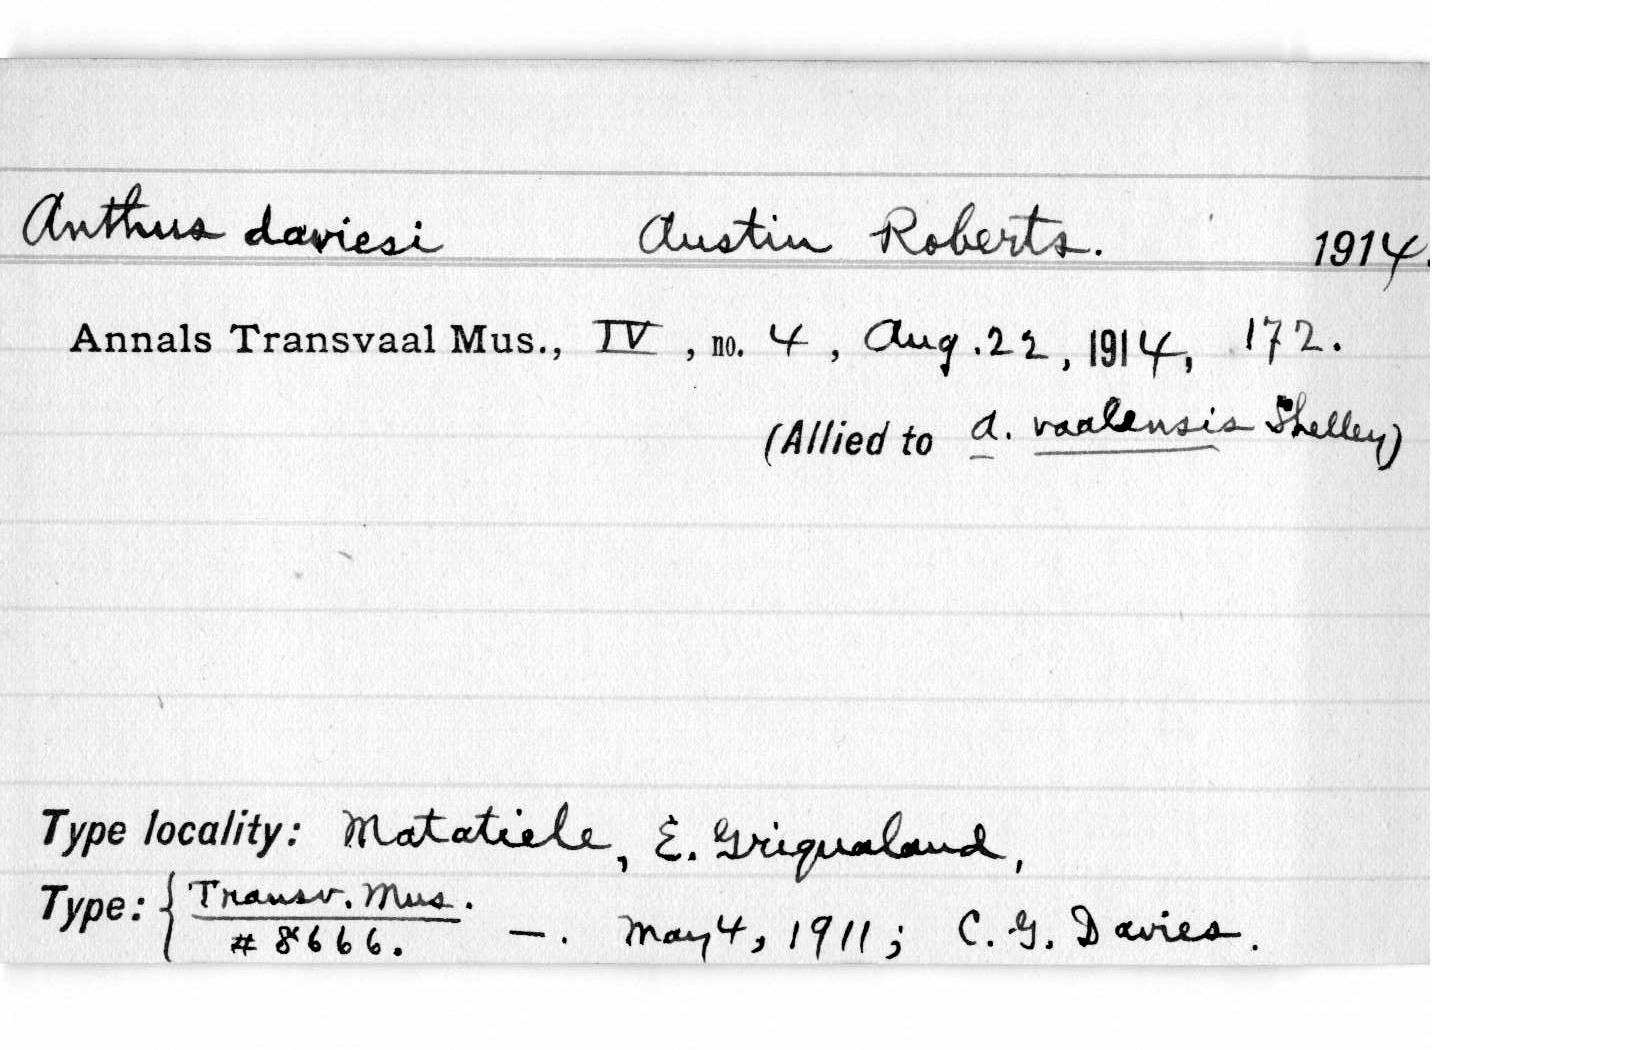 Anthus daviesi Austin Roberts. 1914.
Annals Transvaal Mus., IV, no. 4, Aug. 22, 1914, 172.
(Allied to A. vaalensis Shelley)
Type locality: Matatiele, E. Griqualand,
Type: { Transv. Mus.
# 8666. —. May 4, 1911; C. G. Davies.